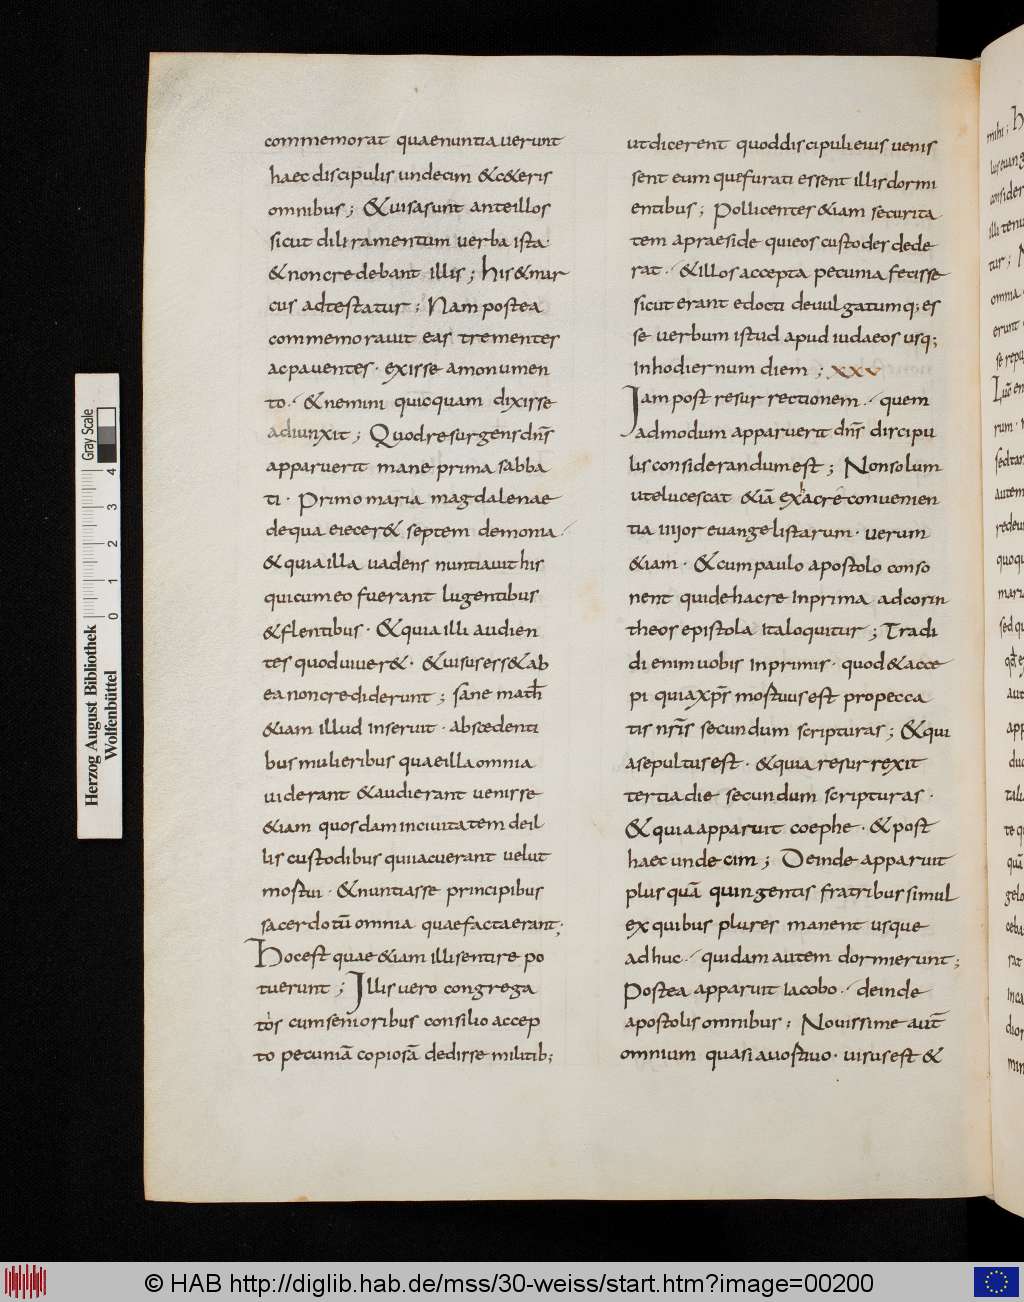 commemorat quae nuntiaverunt
haec discipulis undecim & c&eris
omnibus; & visa sunt ante illos
sicut diliramentum verba ista·
& non credebant illis; his & mar
cus adtestatur; Nam postea
commemoravit eas trementes
ac paventes· exisse a monumen
to·/ & nemini quicquam dixisse
adiunxit; Quod resurgens dn̄s
apparverit mane prima sabba
ti· Primo maria magdalenae
de qua eiecer& septem demonia·/
& quia illa vadens nuntiavit his
qui cum eo fuerant lugentibus
& flentibus· & quia illi audien
tes quod viver&· & visus ess& ab
ea non crediderunt; sane math̄
&iam illud inseruit· abscedenti
bus mulieribus quae illa omnia
viderant & audierant venisse
&iam quosdam in civitatem de il
lis custodibus qui iacuerant velut
mostui· & nuntiasse principibus
sacerdotū omnia quae facta erant;
Hoc est quae &iam illi sentire po
tuerunt; Illis vero congrega
tos cum senioribus consilio accep
to pecuniā copiosā dedisse militib;
ut dicerent quod discipuli eius venis
sent eumque furati essent illis dormi
entibus; Pollicentes &iam securita
tem a praeside qui eos custodes dede
rat·/ & illos accepta pecunia fecisse
sicut erant edocti devulgatumq; es
se verbum istud apud iudaeos usq;
in hodiernum diem; xxv
Iam post resurrectionem·/ quem
admodum apparverit dn̄s discipu
lis considerandum est; Non solum
ut elucescat &iā ex hac re convenien
tia iiiior euangelistarum· verum
&iam· & cum paulo apostolo conso
nent qui de hac re In prima ad corin
theos epistola Ita loquitur; Tradi
di enim vobis In primis· quod & acce
pi quia xpr̄ mostuus est pro pecca
tis nr̄is secundum scripturas; & qui
a sepultus est· & quia resurrexit
tertia die secundum scripturas·
& quia apparuit coephe· & post
haec undecim; Deinde apparuit
plus quā quingentis fratribus simul
ex quibus plures manent usque
adhuc·/ quidam autem dormierunt;
Postea apparuit Iacobo·/ deinde
apostolis omnibus; Novissime aut̄
omnium quasi avostivo· visus est &
mihi;
Herzog August Bibliothek
Wolfenbüttel
Gray Scale
0 1 2 3 4
© HAB http://diglib.hab.de/mss/30-weiss/start.htm?image=00200